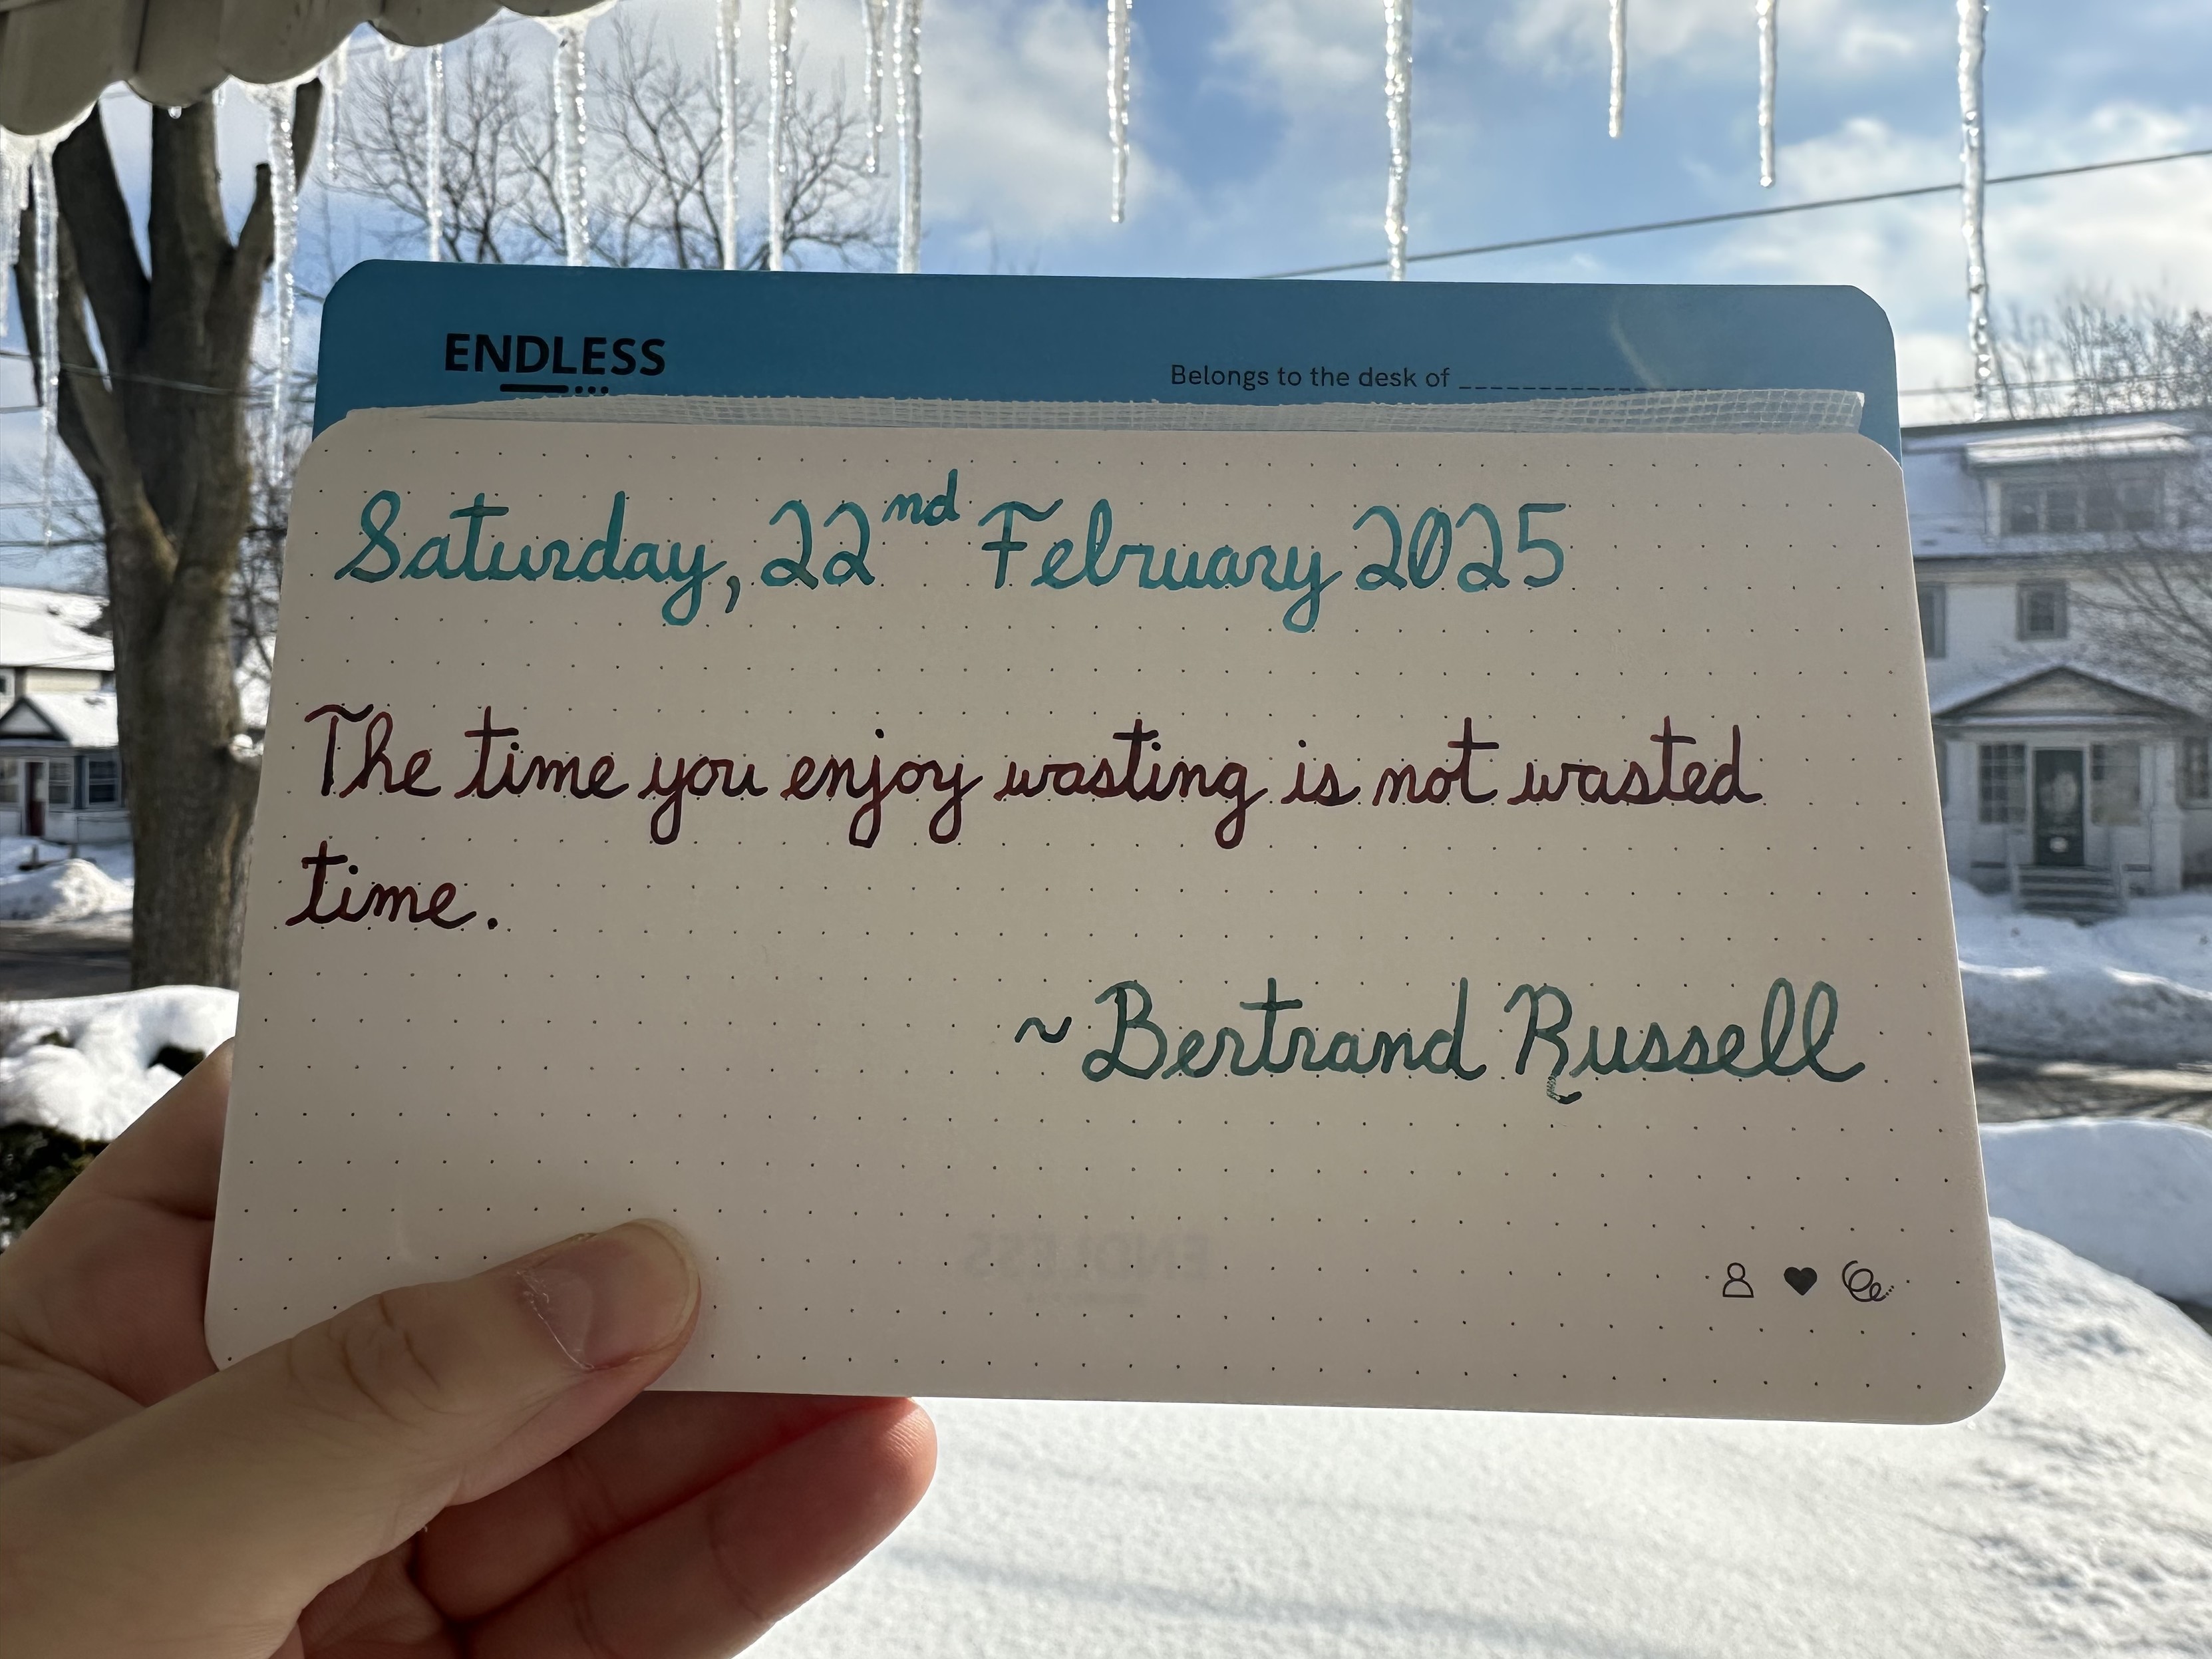 ENDLESS
Belongs to the desk of
Saturday, 22nd February 2025
The time you enjoy wasting is not wasted
time.
~Bertrand Russell
ENDLESS